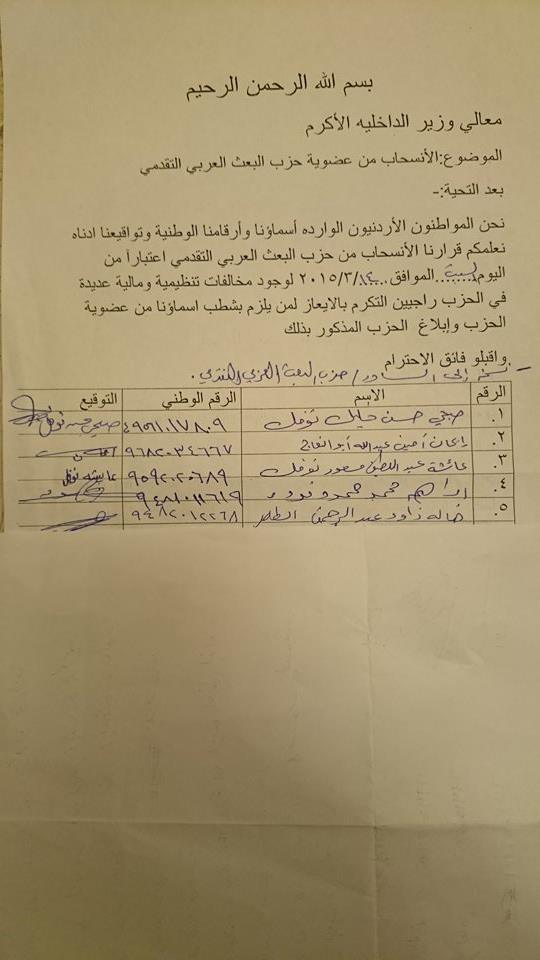 بسم الله الرحمن الرحيم
معالي وزير الداخليه الأكرم
الموضوع:الأنسحاب من عضوية حزب البعث العربي التقدمي
بعد التحية:-
نحن المواطنون الأردنيون الوارده أسماؤنا وأرقامنا الوطنية وتواقيعنا ادناه
نعلمكم قرارنا الأنسحاب من حزب البعث العربي التقدمي اعتباراً من
اليوم السبت الموافق ١٤/٣/٢٠١٥ لوجود مخالفات تنظيمية ومالية عديدة
في الحزب راجيين التكرم بالايعاز لمن يلزم بشطب اسماؤنا من عضوية
الحزب وإبلاغ الحزب المذكور بذلك
واقبلو فائق الاحترام
نسخه إلى السادة / حزب البعث العربي التقدمي .
الرقم الإسم الرقم الوطني التوقيع
١. صبحي حسن نوفل
٢. إيمان أمين عبدالله ٩٦٨٢٠٣٤٦٦٧
٣. عائشة عبد نوفل ٩٥٩٢٠٢٠٦٨٩ عايشه نوفل
٤. ابراهيم محمد
٥. خاله داود عبد الرحمن ٩٤٨٢٠١٢٢٦٨